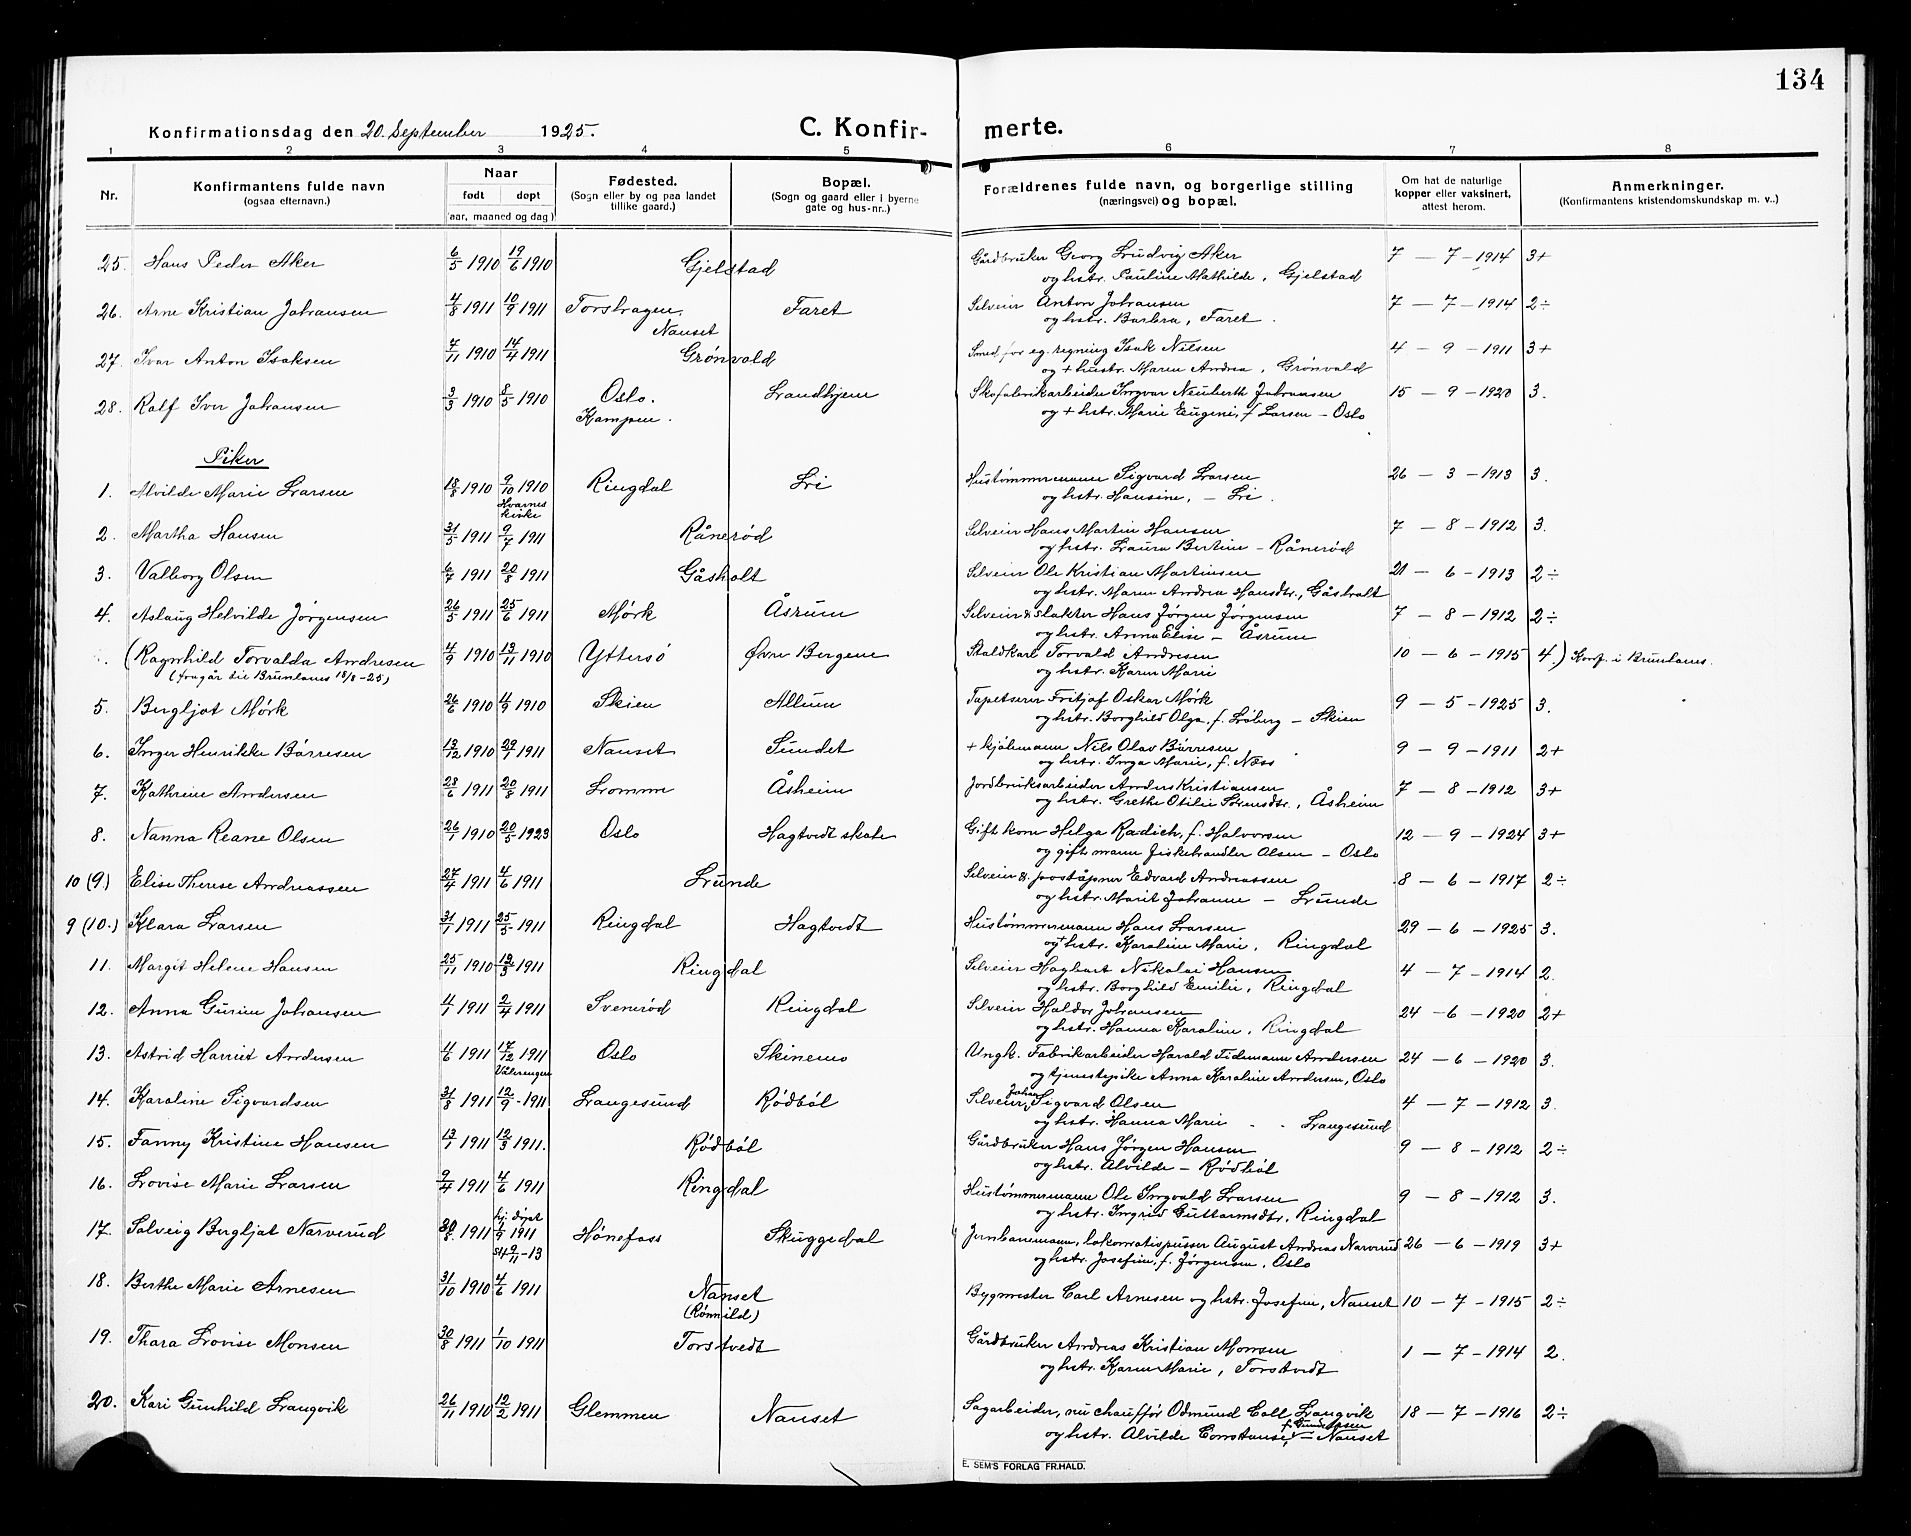 134
Konfirmationsdag den 20. September 1925.
C. Konfir- merte.
1 2 3 4 5 6 7 8
Nr. Konfirmantens fulde navn (ogsaa efternavn.) Naar født døpt (aar, maaned og dag) Fødested. (Sogn eller by og paa landet tillike gaard.) Bopæl. (Sogn og gaard eller i byerne gate og hus-nr.) Forældrenes fulde navn, og borgerlige stilling (næringsvei) og bopæl. Om hat de naturlige kopper eller vaksinert, attest herom. Anmerkninger. (Konfirmantens kristendomskundskap m. v.)
25. Hans Peder Aker 6/5 1910 19/6 1910 Gjelstad Gårdbruker Georg Ludvig Aker 7 – 7 – 1914 3+
og hstr. Pauline Mathilde, Gjelstad
26. Arne Kristian Johansen 4/8 1911 10/9 1911 Torshagen, Faret Selveier Anton Johansen 7 – 7 – 1914 2÷
Nanset og hstr. Barbra, Faret.
27. Ivar Anton Isaksen 7/11 1910 14/4 1911 Grønvold Smed for eg. regning Isak Nielsen 4 – 9 – 1911 3+
og + hustr. Maren Andrea, Grønvold
28. Ralf Iver Johansen 3/3 1910 8/5 1910 Oslo. Landhjem Skofabrikarbeider Ingvar Neuberth Johansen 15 – 9 – 1920 3.
Kampen. og + hstr. Marie Eugenie, f. Larsen – Oslo
Piker
1. Alvilde Marie Larsen 18/8 1910 9/10 1910 Ringdal Li Hustømmermann Sigvard Larsen 26 – 3 – 1913 3.
Hvarnes kirke og hstr. Hansine, – Li.
2. Martha Hansen 31/5 1911 9/7 1911 Rånerød Selveier Hans Martin Hansen 7 – 8 – 1912 3.
og hstr. Laura Bertine – Rånerød
3. Valborg Olsen 6/7 1911 20/8 1911 Gåsholt Selveier Ole Kristian Martinsen 21 – 6 – 1913 2÷
og hstr. Maren Andrea Hansdtr., Gåsholt
4. Aslaug Helvilde Jørgensen 26/5 1911 25/6 1911 Mørk Åsrum Selveier & slakter Hans Jørgen Jørgensen 7 – 8 – 1912 2÷
og hstr. Anna Elise – Åsrum
(Ragnhild Torvalda Andresen 4/9 1910 13/11 1910 Yttersø Øvre Bergene Staldkarl Torvald Andresen 10 – 6 – 1915 4.) Konf. i Brunlanes.
(fragår til Brunlanes 18/8 – 25) og hstr. Karen Marie
5. Bergljot Mørk 26/6 1910 4/9 1910 Skien Allum Tapetserer Fritjof Oskar Mørk 9 – 5 – 1925 3.
og hstr. Borghild Olga, f. Løberg – Skien
6. Inger Henrikke Bärresen 13/12 1910 29/1 1911 Nanset Sundet + kjøbmann Nils Olav Bärresen 9 – 9 – 1911 2+
og hstr. Inga Marie, f. Næss
7. Kathrine Andersen 28/6 1911 20/8 1911 Lomme Åsheim Jordbruksarbeider Anders Kristiansen 7 – 8 – 1912 3+
og hstr. Grethe Otilie Sørensdtr., Åsheim
8. Nanna Reane Olsen 26/1 1910 20/5 1923 Oslo Hagtvedt skole Gift kone Helga Radich, f. Halvorsen 12 – 9 – 1924 3+
og gift mann fiskehandler Olsen – Oslo
10 (9.) Elise Therese Andreassen 27/4 1911 4/6 1911 Lunde Selveier & poståpner Edvard Andreassen 8 – 6 – 1917 2÷
og hstr. Marit Johanne – Lunde
9 (10.) Klara Larsen 31/1 1911 25/5 1911 Ringdal Hagtvedt Hustømmermann Hans Larsen 29 – 6 – 1925 3.
og + hstr. Karoline Marie, Ringdal
11. Margit Helene Hansen 25/11 1910 12/3 1911 Ringdal Selveier Hagbart Nikolai Hansen 4 – 7 – 1914 2.
og hstr. Borghild Emilie, Ringdal
12. Anna Gurine Johansen 4/1 1911 2/4 1911 Svenerød Ringdal Selveier Haldor Johansen 24 – 6 – 1920 2+
og hstr. Hanna Karoline, Ringdal
13. Astrid Harriet Andersen 4/6 1911 17/12 1911 Oslo Skinemo Ungk. Fabrikarbeider Harald Tidemann Andersen 24 – 6 – 1920 3.
Vålerengen og tjenestepike Anna Karoline Andersen, Oslo
14. Karoline Sigvardsen 31/8 1911 12/9 – 1911 Langesund Rødbøl Selveier Johan Sigvard Olsen 4 – 7 – 1912 3.
og hstr. Hanna Marie Langesund
15. Fanny Kristine Hansen 13/1 1911 12/3 1911. Rødbøl Gårdbruker Hans Jørgen Hansen 9 – 8 – 1912 2÷
og hstr. Alvilde – Rødbøl
16. Lovise Marie Larsen 9/4 1911 4/6 1911 Ringdal Hustømmermann Ole Ingvald Larsen 9 – 8 – 1912 3.
og hstr. Ingrid Guttormsdtr., Ringdal
17. Solveig Bergljot Narverud 30/8 1911 hj. døpt 1/9 1911 Hønefoss Skuggedal Jernbanemann, lokomotivpusser August Andreas Narverud 26 – 6 – 1919 3+
st 9/11 – 13 og hstr. Josefine, f. Jørgensen, Oslo
18. Berthe Marie Arnesen 31/10 1910 4/6 1911 Nanset Bygmester Carl Arnesen og hstr. Josefine, Nanset 10 – 7 – 1915 2÷
(Rønnild)
19. Thara Lovise Monsen 30/8 1911 1/10 1911 Torstvedt Gårdbruker Andreas Kristian Monsen 1 – 7 – 1914 2.
og hstr. Karen Marie, Torstvedt
20. Kari Gunhild Langvik 26/11 1910 12/2 1911 Glemmen Nanset Sagarbeider, nu chauffør Odmund Coll Langvik 18 – 7 – 1916 2÷
og hstr. Alvilde Constanse, f. Gundersen – Nanset
E. SEM'S FORLAG FR.HALD.